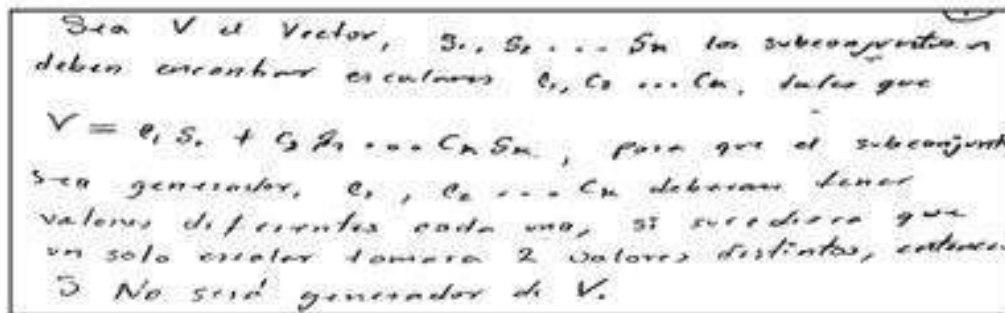 Sea V el Vector, S1, S2 ... Sn los subconjuntos
deben encontrar escalares c1, c2 ... cn, tales que
V = c1 S1 + c2 S2 ... Cn Sn, para que el subconjunt
sea generador, c1, c2 ... cn deberan tener
valores diferentes cada uno, si sucediera que
un solo escalar tomara 2 valores distintos, entonces
S No será generador de V.